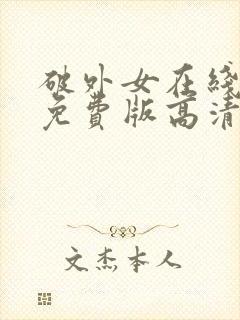 破外女在綫
免費版高清
文杰本人